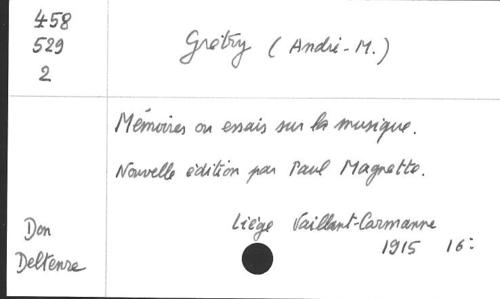 458
529
2
Grétry (André-M.)
Mémoires ou essais sur la musique.
Nouvelle édition par Paul Magnette.
Liège Vaillant-Carmanne
1915 16:
Don
Deltenre